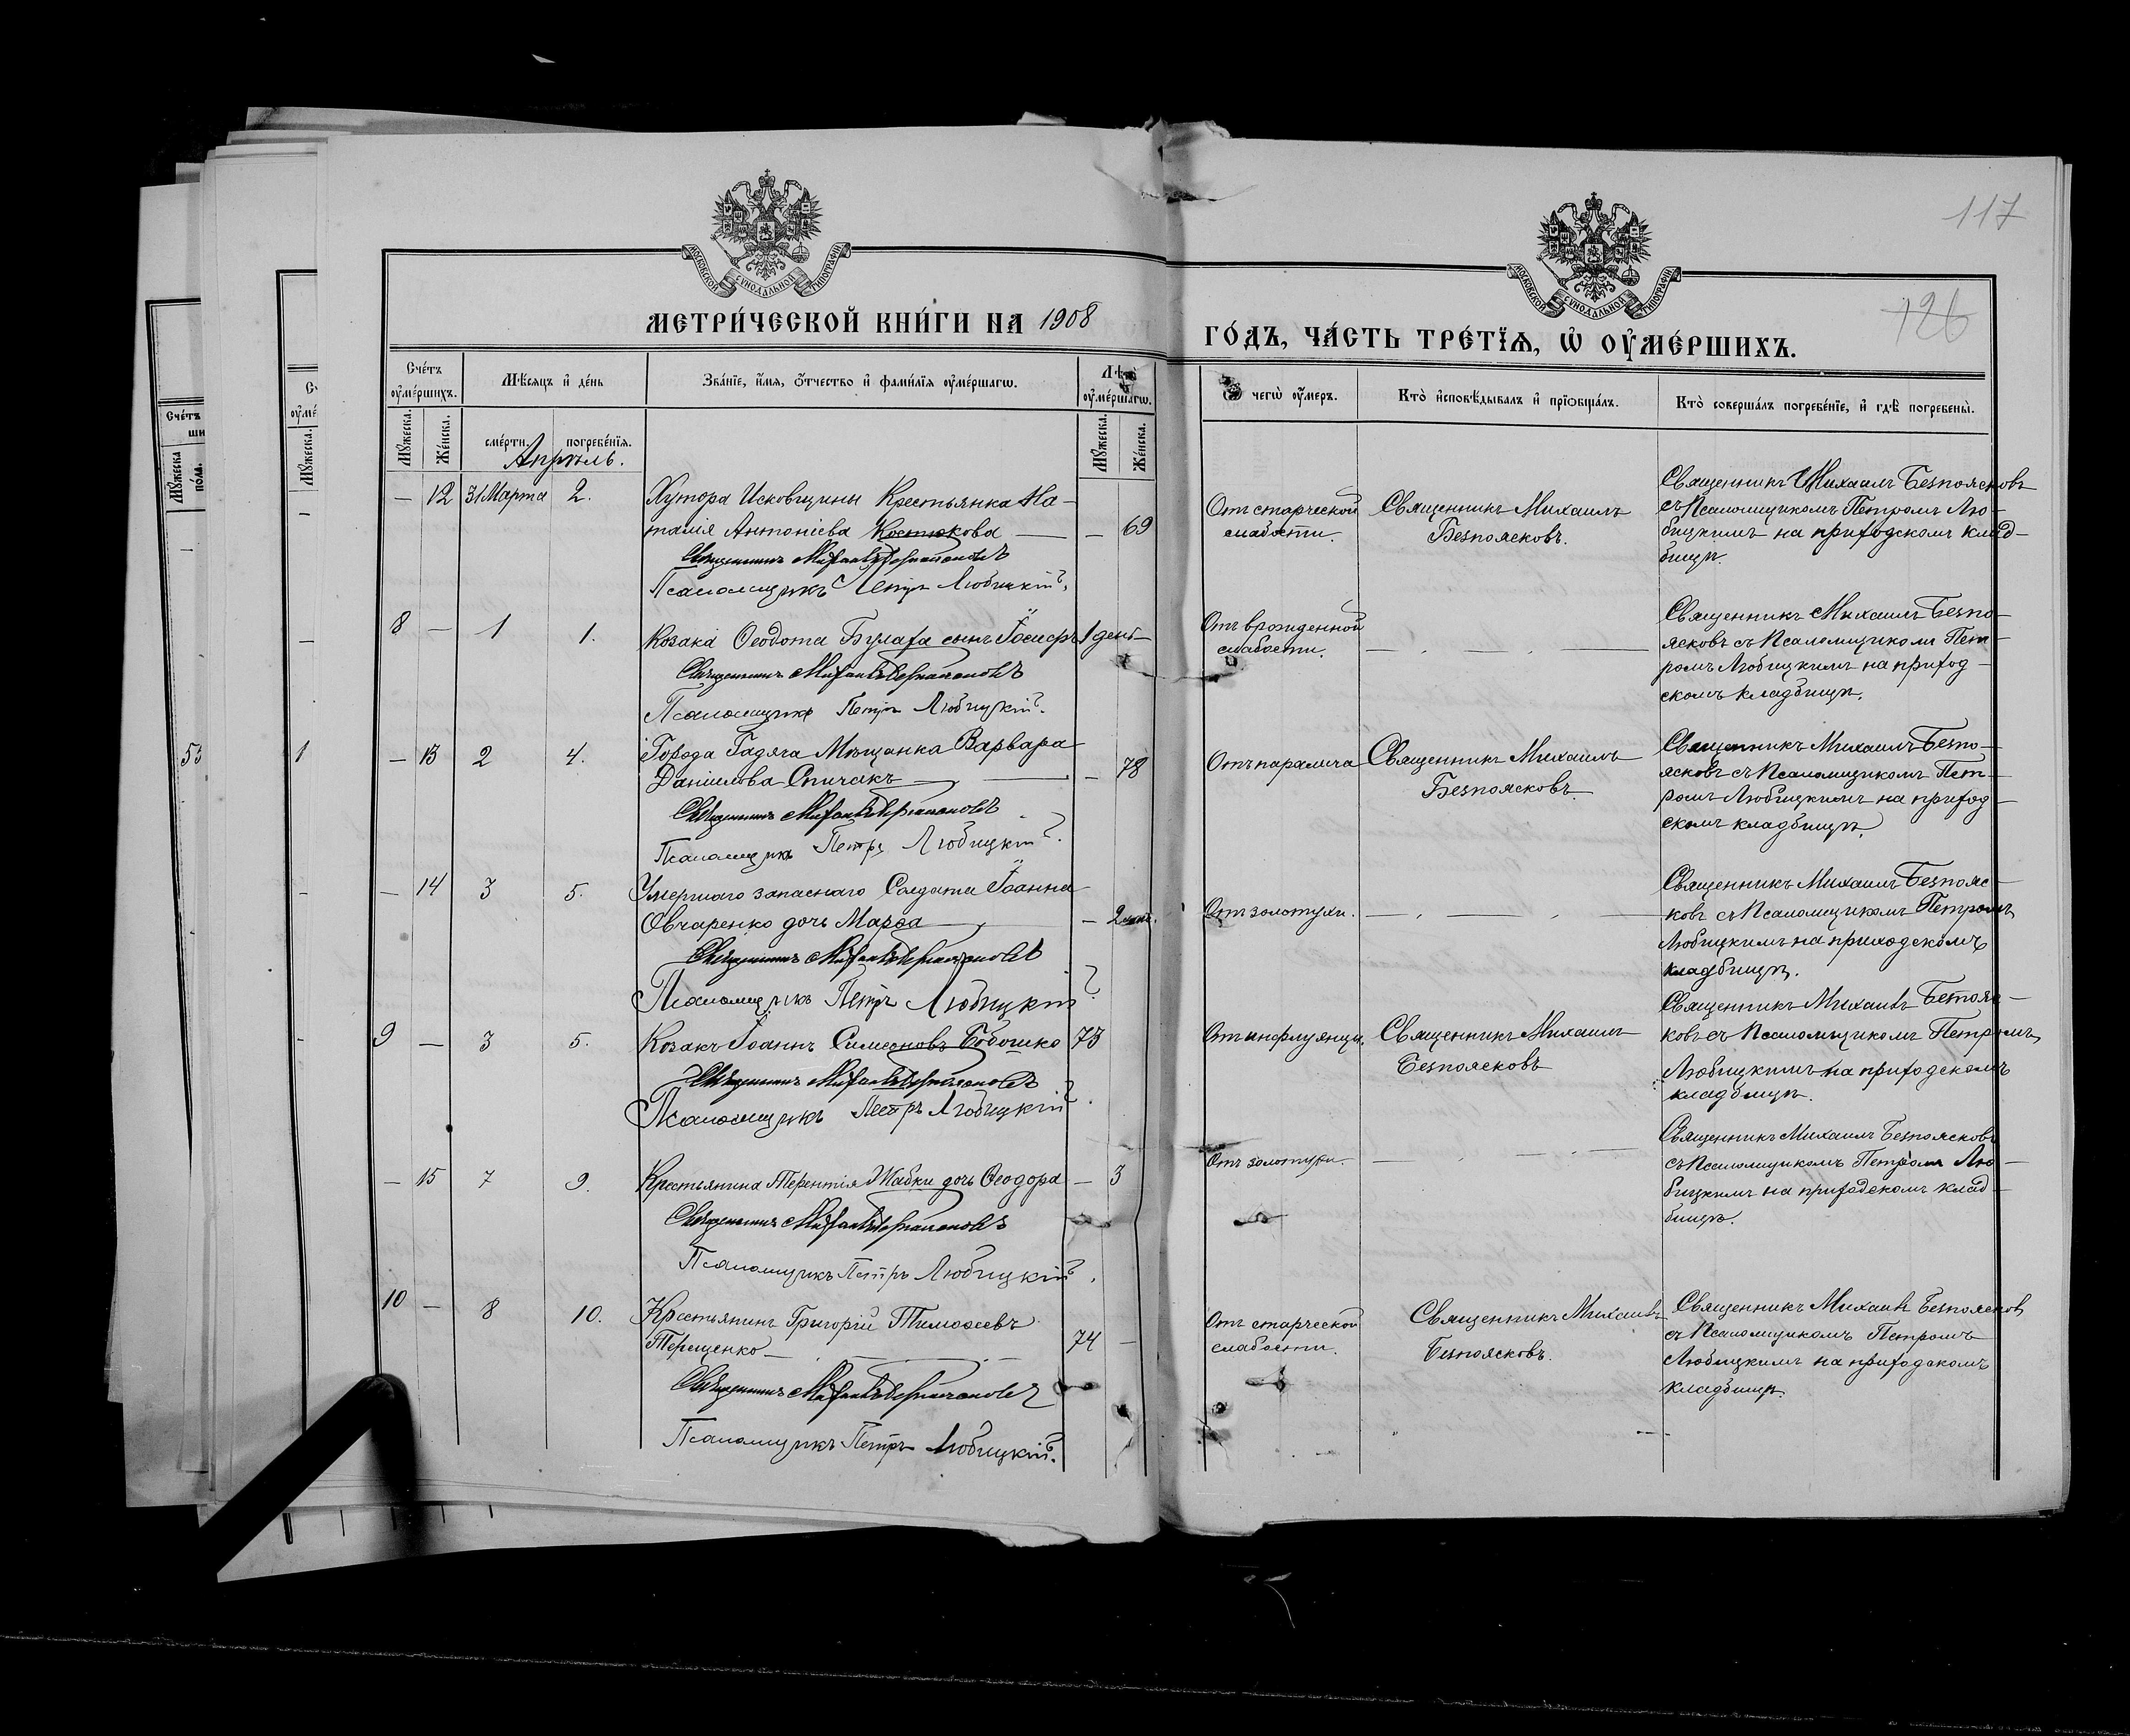 117
126
МОСКОВСКОЙ СѴНОДАЛЬНОЙ ТИПОГРАФІИ
МОСКОВСКОЙ СѴНОДАЛЬНОЙ ТИПОГРАФІИ
МЕТРИ́ЧЕСКОЙ КНИ́ГИ НА 1908
ГО́ДЪ, ЧА́СТЬ ТРЕ́ТЇѦ, Ѡ҆ ОУ҆МЕ́РШИХЪ.
Сче́тъ оу҆ме́ршихъ.
Мѣ́сяцъ и҆ де́нь
Зва́нїе, и҆́мя, ѻ҆́тчество и҆ фами́лїя оу҆ме́ршагѡ.
Лѣ́та оу҆ме́ршагѡ.
Ѿ чегѡ̀ оу҆́меръ.
Кто̀ и҆сповѣ́дывалъ и҆ прїѡбща́лъ.
Кто̀ соверша́лъ погребе́нїе, и҆ гдѣ̀ погребены̀.
Мꙋ́жеска.
Же́нска.
сме́рти.
погребе́нїя.
Мꙋ́жеска.
Же́нска.
Апрѣль.
— 12 31 Марта 2. Хутора Исковщины Крестьянка На-
талія Антоніева Костюкова — — 69
Священникъ Михаилъ Безпоясковъ
Псаломщикъ Петръ Любицкій.
Отъ старческой
слабости.
Священникъ Михаилъ
Безпоясковъ.
Священникъ Михаилъ Безпоясковъ
съ Псаломщикомъ Петромъ Лю-
бицкимъ на приходскомъ клад-
бищѣ.
8 — 1 1. Козака Ѳеодота Булаха сынъ Іосифъ 1 день —
Священникъ Михаилъ Безпоясковъ
Псаломщикъ Петръ Любицкій.
Отъ врожденной
слабости.
Священникъ Михаилъ Безпо-
ясковъ съ Псаломщикомъ Пет-
ромъ Любицкимъ на приход-
скомъ кладбищѣ.
— 13 2 4. Города Гадяча Мѣщанка Варвара
Даніилова Спичакъ — — 78
Священникъ Михаилъ Безпоясковъ
Псаломщикъ Петръ Любицкій.
Отъ паралича
Священникъ Михаилъ
Безпоясковъ.
Священникъ Михаилъ Безпо-
ясковъ съ Псаломщикомъ Пет-
ромъ Любицкимъ на приход-
скомъ кладбищѣ.
— 14 3 5. Умершаго запаснаго Солдата Іоанна
Овчаренко дочь Марѳа — — 2
Священникъ Михаилъ Безпоясковъ
Псаломщикъ Петръ Любицкій
Отъ золотухи.
Священникъ Михаилъ Безпояс-
ковъ съ Псаломщикомъ Петромъ
Любицкимъ на приходскомъ
кладбищѣ.
9 — 3 5. Козакъ Іоаннъ Симеоновъ Бобошко 73
Священникъ Михаилъ Безпоясковъ
Псаломщикъ Петръ Любицкій.
Отъ инфлуэнци.
Священникъ Михаилъ
Безпоясковъ
Священникъ Михаилъ Безпояс-
ковъ съ Псаломщикомъ Петромъ
Любицкимъ на приходскомъ
кладбищѣ.
— 15 7 9. Крестьянина Терентія Жабки дочь Ѳеодора — 3
Священникъ Михаилъ Безпоясковъ
Псаломщикъ Петръ Любицкій.
Отъ золотухи.
Священникъ Михаилъ Безпоясковъ
съ Псаломщикомъ Петромъ Лю-
бицкимъ на приходскомъ клад-
бищѣ.
10 — 8 10. Крестьянинъ Григорій Тимоѳеевъ
Терещенко — 74 —
Священникъ Михаилъ Безпоясковъ
Псаломщикъ Петръ Любицкій.
Отъ старческой
слабости.
Священникъ Михаилъ
Безпоясковъ.
Священникъ Михаилъ Безпоясковъ
съ Псаломщикомъ Петромъ
Любицкимъ на приходскомъ
кладбищѣ.